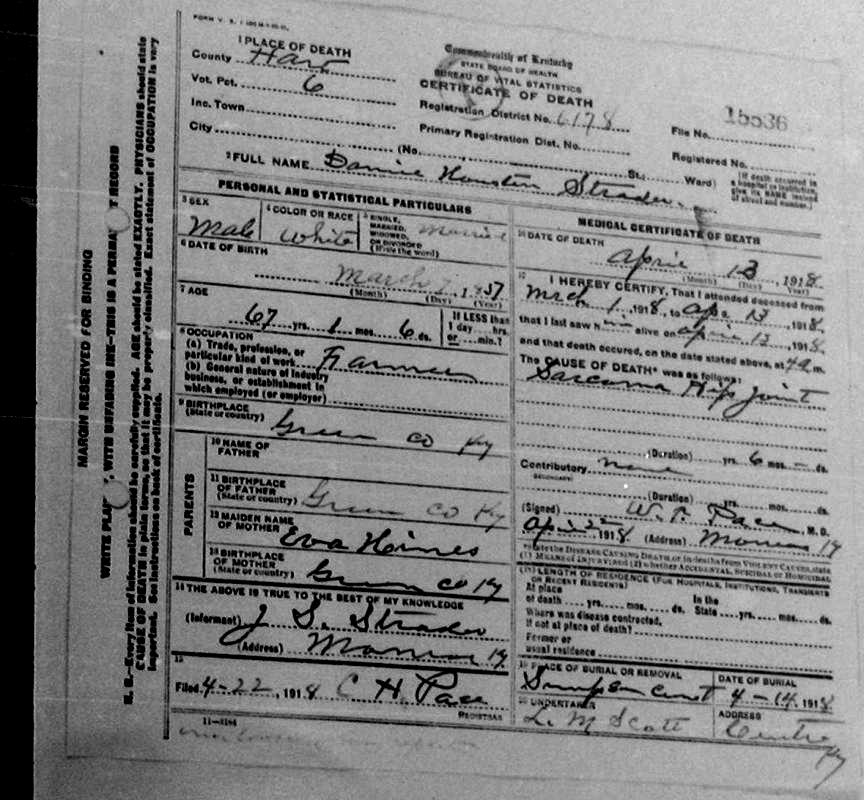 1 PLACE OF DEATH
County Hart
Vot. Pct. 6
Inc. Town
City
Commonwealth of Kentucky
STATE BOARD OF HEALTH
BUREAU OF VITAL STATISTICS
CERTIFICATE OF DEATH
Registration District No. 6178
Primary Registration Dist. No.
File No. 15536
Registered No.
(No. St.; Ward)
(If death occurred in
a hospital or institution,
give its NAME instead
of street and number.)
2 FULL NAME Houston Strader
PERSONAL AND STATISTICAL PARTICULARS
3 SEX
Male
4 COLOR OR RACE
White
5 SINGLE,
MARRIED,
WIDOWED,
OR DIVORCED
(Write the word)
Married
6 DATE OF BIRTH
March
(Month) (Day) (Year)
7 AGE
67 yrs. 1 mos. 6 ds.
If LESS than
1 day hrs.
or min.?
8 OCCUPATION
(a) Trade, profession, or
particular kind of work Farmer
(b) General nature of industry
business, or establishment in
which employed (or employer)
9 BIRTHPLACE
(State or country) Green Co Ky
PARENTS
10 NAME OF
FATHER
11 BIRTHPLACE
OF FATHER
(State or country) Green Co Ky
12 MAIDEN NAME
OF MOTHER Eva
13 BIRTHPLACE
OF MOTHER
(State or country) Green Co Ky
14 THE ABOVE IS TRUE TO THE BEST OF MY KNOWLEDGE
(Informant) J S. Strader
(Address) Ky
15
Filed 4-22, 1918 C H. Pace
REGISTRAR
11-3184
MEDICAL CERTIFICATE OF DEATH
16 DATE OF DEATH
April 13, 1918
(Month) (Day) (Year)
17 I HEREBY CERTIFY, That I attended deceased from
Mrch 1, 1918, to Ap 13, 1918,
that I last saw him alive on April 13, 1918,
and that death occured, on the date stated above, at 4a m.
The CAUSE OF DEATH* was as follows:
Sarcoma Hip Joint
(Duration) yrs. 6 mos. – ds.
Contributory none
SECONDARY
(Duration) yrs. mos. ds.
(Signed) W. T. Pace M. D.
Ap 22, 1918 (Address) Ky
*State the DISEASE CAUSING DEATH, or in deaths from VIOLENT CAUSES, state
(1) MEANS OF INJURY; and (2) whether ACCIDENTAL, SUICIDAL or HOMICIDAL
18 LENGTH OF RESIDENCE (FOR HOSPITALS, INSTITUTIONS, TRANSIENTS
OR RECENT RESIDENTS)
At place In the
of death yrs. mos. ds. State yrs. mos. ds.
Where was disease contracted,
if not at place of death?
Former or
usual residence
19 PLACE OF BURIAL OR REMOVAL
DATE OF BURIAL
4-14, 1918
20 UNDERTAKER
L. M Scott
ADDRESS
Ky
MARGIN RESERVED FOR BINDING
WITH UNFADING INK—THIS IS A RECORD
N. B.—Every item of information should be carefully supplied. AGE should be stated EXACTLY. PHYSICIANS should state
CAUSE OF DEATH in plain terms, so that it may be properly classified. Exact statement of OCCUPATION is very
important. See instructions on back of certificate.